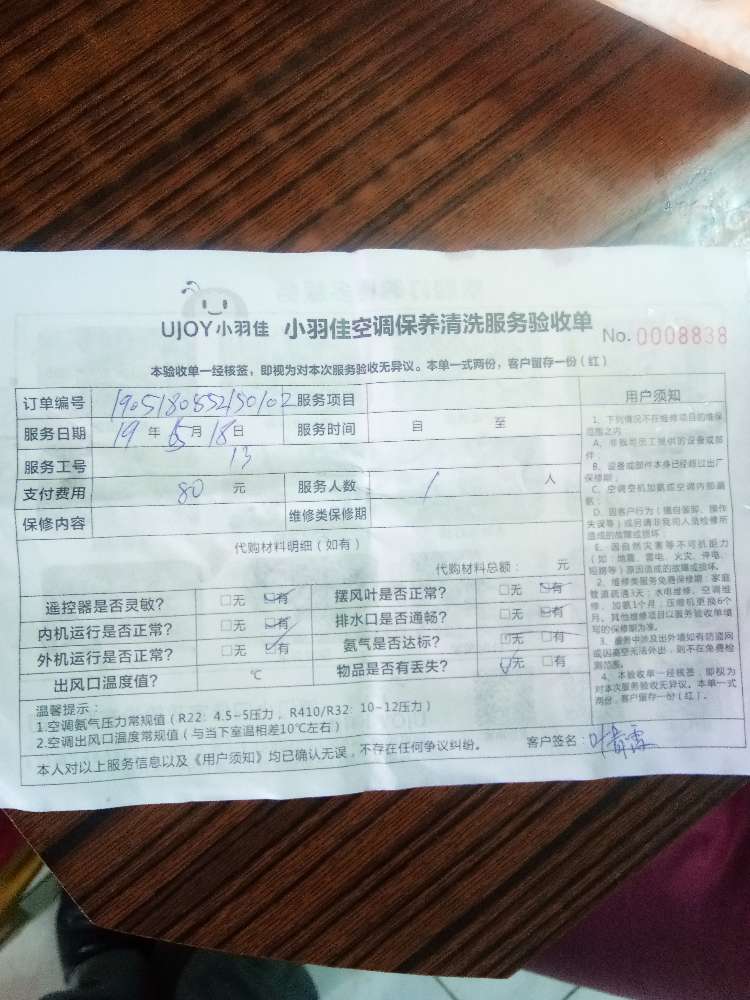 UJOY小羽佳 小羽佳空调保养清洗服务验收单 No. 0008838
本验收单一经核签，即视为对本次服务验收无异议。本单一式两份，客户留存一份（红）
订单编号 服务项目
服务日期 19 年 5 月 18 日 服务时间 自 至
服务工号 13
支付费用 80 元 服务人数 1 人
保修内容 维修类保修期
代购材料明细（如有）
代购材料总额： 元
遥控器是否灵敏？ □无 □有 摆风叶是否正常？ □无 □有
内机运行是否正常？ □无 □有 排水口是否通畅？ □无 □有
外机运行是否正常？ □无 □有 氨气是否达标？ □无 □有
出风口温度值？ ℃ 物品是否有丢失？ □无 □有
温馨提示：
1.空调氨气压力常规值（R22: 4.5~5压力， R410/R32: 10~12压力）
2.空调出风口温度常规值（与当下室温相差10℃左右）
本人对以上服务信息以及《用户须知》均已确认无误，不存在任何争议纠纷。 客户签名：
用户须知
1、下列情况不在维修项目的维保
范围之内：
A、非我司员工提供的设备或部
件；
B、设备或部件本身已经超过出厂
保修期；
C、空调空机加氨或空调内部漏
氨；
D、因客户行为（擅自装卸、操作
失误等）或另请非我司人员检修所
造成的故障或损坏
E、因自然灾害等不可抗拒力
（如：地震、雷电、火灾、停电、
短路等）原因造成的故障或损坏。
2、维修类服务免费保修期：家庭
管道疏通3天；水电维修、空调维
修、加氨1个月；压缩机更换6个
月。其他维修项目以服务验收单填
写的保修期为准。
3、服务中涉及出外墙如有防盗网
或因高空无法外出，则不在免费检
测范围。
4、本验收单一经核签，即视为
对本次服务验收无异议。本单一式
两份，客户留存一份（红）。